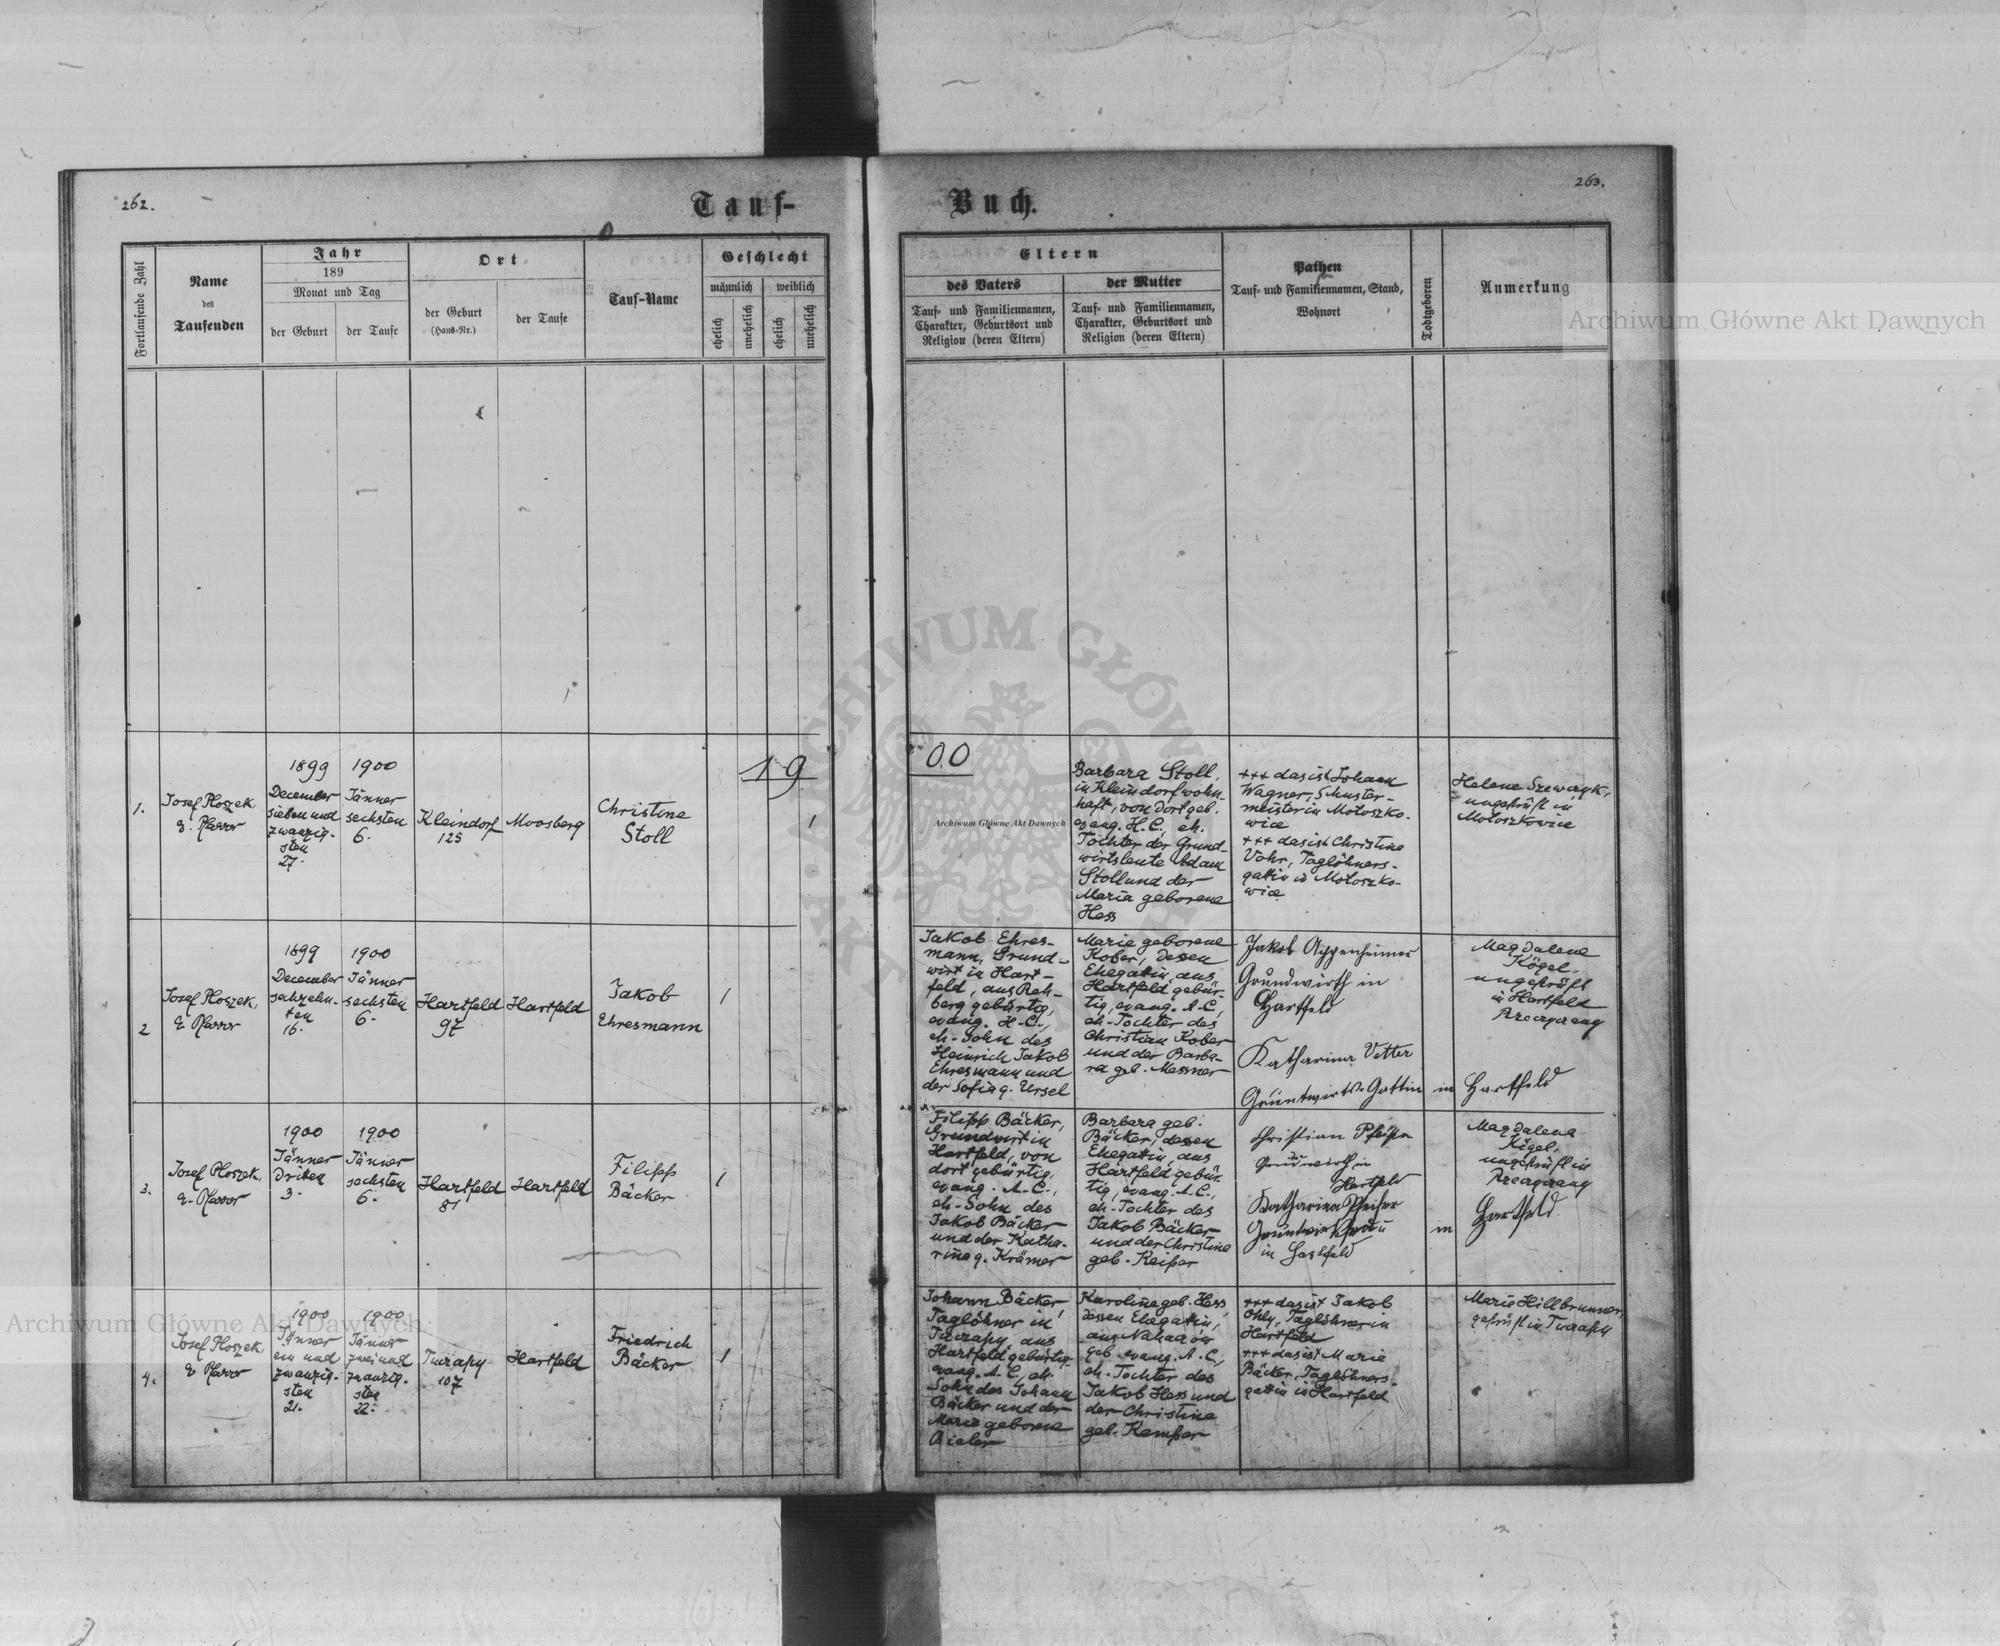 262.
Tauf-
Fortlaufende Zahl
Name
des
Taufenden
Jahr
189
Monat und Tag
der Geburt
der Taufe
Ort
der Geburt
(Haus-Nr.)
der Taufe
Tauf-Name
Geschlecht
männlich
weiblich
ehelich
unehelich
ehelich
unehelich
19
1.
Josef Ploszek,
e. Pfarrer
1899
December
sieben und
zwanzig-
sten
27.
1900
Jänner
sechsten
6.
Kleindorf
125
Moosberg
Christine
Stoll
1
2
Josef Ploszek,
e. Pfarrer
1899
December
sechzehn-
ten
16.
1900
Jänner
sechsten
6.
Hartfeld
97
Hartfeld
Jakob
Ehresmann
1
3.
Josef Ploszek,
e. Pfarrer
1900
Jänner
dritten
3.
1900
Jänner
sechsten
6.
Hartfeld
81
Hartfeld
Filipp
Bäcker
1
4.
Josef Ploszek,
e. Pfarrer
1900
Jänner
ein und
zwanzig-
sten
21.
1900
Jänner
zwei und
zwanzig-
sten
22.
Tucapy
107
Hartfeld
Friedrich
Bäcker
1
263.
Buch.
Eltern
des Vaters
Tauf- und Familiennamen,
Charakter, Geburtsort und
Religion (deren Eltern)
der Mutter
Tauf- und Familiennamen,
Charakter, Geburtsort und
Religion (deren Eltern)
Pathen
Tauf- und Familiennamen, Stand,
Wohnort
Todtgeboren
Anmerkung
00
Barbara Stoll,
in Kleindorf wohn-
haft, von dort geb.
evang. H.C., eh.
Tochter der Grund-
wirtsleute Adam
Stoll und der
Maria geborene
Hess
+++ das ist Johann
Wagner, Schuster-
meister in Mołoszko-
wice
+++ das ist Christine
Vohr, Taglöhners-
gattin in Mołoszko-
wice
Helene Szewczyk,
ungeprüft in
Mołoszkowice
Jakob Ehres-
mann, Grund-
wirt in Hart-
feld, aus Reh-
berg gebürtig,
evang. H.C.,
eh. Sohn des
Heinrich Jakob
Ehresmann und
der Sofia g. Ursel
Marie geborene
Kober, dessen
Ehegatin, aus
Hartfeld gebür-
tig, evang. A.C,
eh. Tochter des
Christian Kober
und der Barba-
ra geb. Messner
Jakob Oppenheimer
Grundwirth in
Hartfeld
Katharina Vetter
Grüntwirts-Gattin in Hartfeld
Magdalene
Kögel,
ungeprüft
in Hartfeld
Filipp Bäcker,
Grundwirt in
Hartfeld, von
dort gebürtig,
evang. A.C.,
eh. Sohn des
Jakob Bäcker
und der Katha-
rine g. Krämer
Barbara geb.
Bäcker, dessen
Ehegatin, aus
Hartfeld gebür-
tig, evang. A.C.,
eh. Tochter des
Jakob Bäcker
und der Christine
geb. Keiper
Christian Pfeifer
Grundwirth in
Hartfeld
Katharina Pfeifer
in Hartfeld
Magdalena
Kögel,
ungeprüft in
in Hartfeld
Johann Bäcker,
Taglöhner in
Tucapy, aus
Hartfeld gebürtig,
evang. A.C., eh.
Sohn des Johann
Bäcker und der
Marie geborene
Bieler
Karoline geb. Hess
dessen Ehegatin,
aus Nahaczów
geb. evang. A.C.,
eh. Tochter des
Jakob Hess und
der Christine
geb. Kemper
+++ das ist Jakob
Ohly, Taglöhner in
Hartfeld
+++ das ist Marie
Bäcker, Taglöhners-
gattin in Hartfeld
Marie Hillbrunner,
geprüft in Tucapy
Archiwum Główne Akt Dawnych
Archiwum Główne Akt Dawnych
Archiwum Główne Akt Dawnych